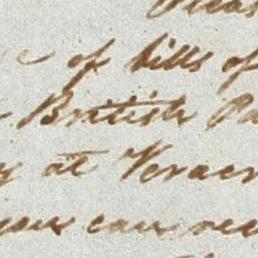 of bills of
British Pa
at Veracr
you can rec